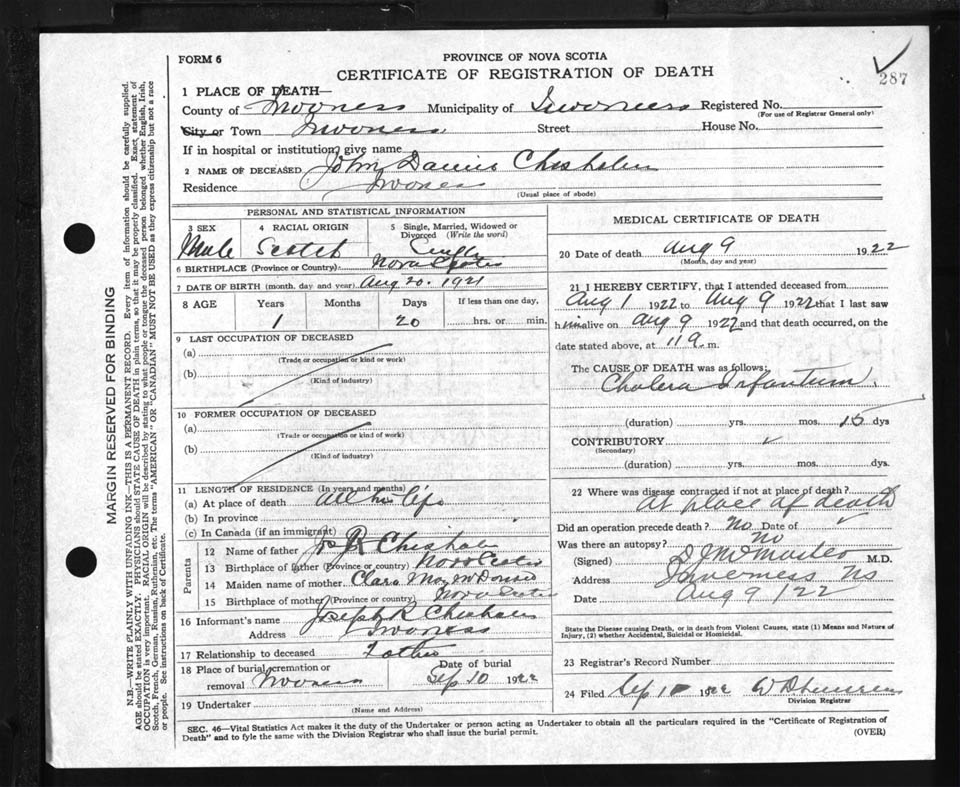 FORM 6
PROVINCE OF NOVA SCOTIA
CERTIFICATE OF REGISTRATION OF DEATH
287
1 PLACE OF DEATH—
County of Inverness Municipality of Inverness Registered No.
(For use of Registrar General only)
City or Town Inverness Street House No.
If in hospital or institution, give name
2 NAME OF DECEASED John Chisholm
Residence Inverness
(Usual place of abode)
PERSONAL AND STATISTICAL INFORMATION
3 SEX 4 RACIAL ORIGIN 5 Single, Married, Widowed or Divorced (Write the word)
Male Scotch Single
6 BIRTHPLACE (Province or Country) Nova Scotia
7 DATE OF BIRTH (month, day and year) Aug 20. 1921
8 AGE Years Months Days If less than one day,
1 20 hrs. or min.
9 LAST OCCUPATION OF DECEASED
(a)
(Trade or occupation or kind of work)
(b)
(Kind of industry)
10 FORMER OCCUPATION OF DECEASED
(a)
(Trade or occupation or kind of work)
(b)
(Kind of industry)
11 LENGTH OF RESIDENCE (In years and months)
(a) At place of death All his life
(b) In province
(c) In Canada (if an immigrant)
Parents
12 Name of father Jos R Chisholm
13 Birthplace of father (Province or country) Nova Scotia
14 Maiden name of mother Clara May McDonald
15 Birthplace of mother (Province or country) Nova Scotia
16 Informant's name Joseph R Chisholm
Address Inverness
17 Relationship to deceased Father
18 Place of burial, cremation or removal Inverness Date of burial Sep 10 1922
19 Undertaker
(Name and Address)
MEDICAL CERTIFICATE OF DEATH
20 Date of death Aug 9 1922
(Month, day and year)
21 I HEREBY CERTIFY, that I attended deceased from
Aug 1 1922 to Aug 9 1922 that I last saw
him alive on Aug 9 1922 and that death occurred, on the
date stated above, at 11 a. m.
The CAUSE OF DEATH was as follows:
Cholera Infantum.
(duration) yrs. mos. 15 dys
CONTRIBUTORY
(Secondary)
(duration) yrs. mos. dys.
22 Where was disease contracted if not at place of death?
at place of death
Did an operation precede death? No Date of
Was there an autopsy? No
(Signed) M.D.
Address Inverness NS
Date Aug 9/22
State the Disease causing Death, or in death from Violent Causes, state (1) Means and Nature of
Injury, (2) whether Accidental, Suicidal or Homicidal.
23 Registrar's Record Number
24 Filed Sep 1922
Division Registrar
SEC. 46—Vital Statistics Act makes it the duty of the Undertaker or person acting as Undertaker to obtain all the particulars required in the "Certificate of Registration of
Death" and to fyle the same with the Division Registrar who shall issue the burial permit.
(OVER)
MARGIN RESERVED FOR BINDING
N.B.—WRITE PLAINLY WITH UNFADING INK—THIS IS A PERMANENT RECORD. Every item of information should be carefully supplied.
AGE should be stated EXACTLY. PHYSICIANS should STATE CAUSE OF DEATH in plain terms, so that it may be properly classified. Exact statement of
OCCUPATION is very important. RACIAL ORIGIN will be described by stating to what people or tongue the deceased person belonged whether English, Irish,
Scotch, French, German, Russian, Ruthenian, etc. The terms "AMERICAN" OR "CANADIAN" MUST NOT BE USED as they express citizenship but not a race
or people. See instructions on back of Certificate.